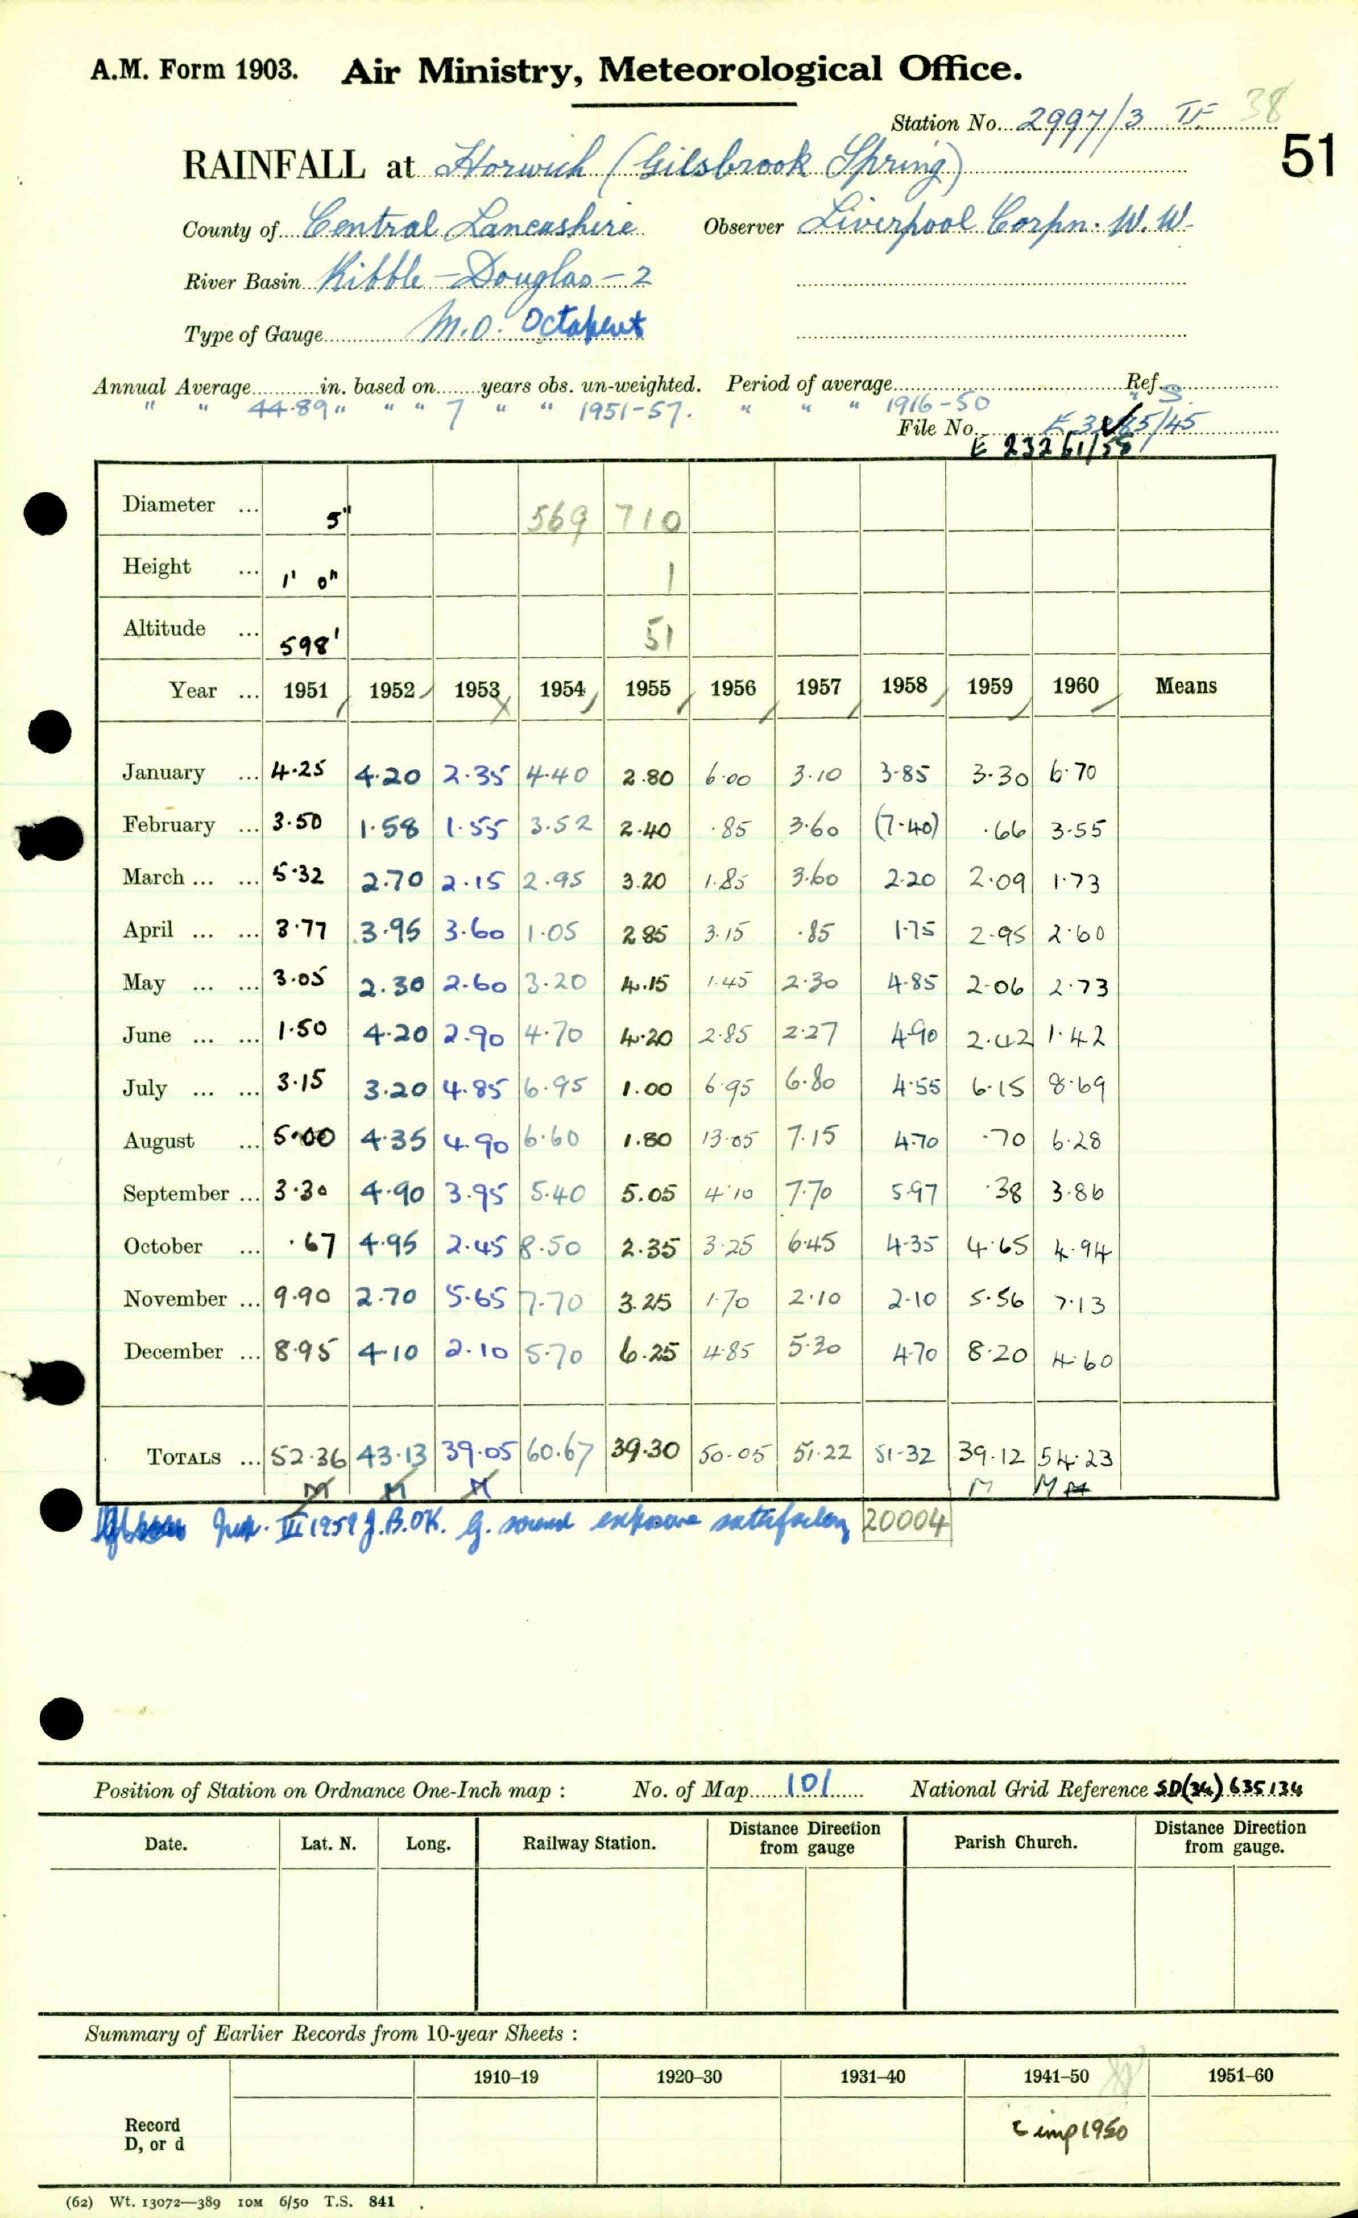 A.M. Form 1903. Air Ministry, Meteorological Office.
Station No. 2997/3 IF 38
51
RAINFALL at Horwich (Gilsbrook Spring)
County of Central Lancashire Observer Liverpool Corpn. W.W.
River Basin Ribble - Douglas - 2
Type of Gauge M.O. Octapent
Annual Average in. based on years obs. un-weighted. Period of average Ref.
" " 44.89 " " " 7 " " 1951-57. " " " 1916-50 " S.
File No.
E 23261/58
Diameter ... 5" 569 710
Height ... 1' 0" 1
Altitude ... 598' 51
Year ... 1951 1952 1953 1954 1955 1956 1957 1958 1959 1960 Means
January ... 4.25 4.20 2.35 4.40 2.80 6.00 3.10 3.85 3.30 6.70
February ... 3.50 1.58 1.55 3.52 2.40 .85 3.60 (7.40) .66 3.55
March ... ... 5.32 2.70 2.15 2.95 3.20 1.85 3.60 2.20 2.09 1.73
April ... ... 3.77 3.95 3.60 1.05 2.85 3.15 .85 1.75 2.95 2.60
May ... ... 3.05 2.30 2.60 3.20 4.15 1.45 2.30 4.85 2.06 2.73
June ... ... 1.50 4.20 2.90 4.70 4.20 2.85 2.27 4.90 2.42 1.42
July ... ... 3.15 3.20 4.85 6.95 1.00 6.95 6.80 4.55 6.15 8.69
August ... 5.00 4.35 4.90 6.60 1.80 13.05 7.15 4.70 .70 6.28
September ... 3.30 4.90 3.95 5.40 5.05 4.10 7.70 5.97 .38 3.86
October ... .67 4.95 2.45 8.50 2.35 3.25 6.45 4.35 4.65 4.94
November ... 9.90 2.70 5.65 7.70 3.25 1.70 2.10 2.10 5.56 7.13
December ... 8.95 4.10 2.10 5.70 6.25 4.85 5.20 4.70 8.20 4.60
TOTALS ... 52.36 43.13 39.05 60.67 39.30 50.05 51.22 51.32 39.12 54.23
M M M M M M
Insp. VII 1959 J.B.OK. G. sound exposure satisfactory 20004
Position of Station on Ordnance One-Inch map : No. of Map 101 National Grid Reference SD(34) 635134
Date. Lat. N. Long. Railway Station. Distance Direction from gauge Parish Church. Distance Direction from gauge.
Summary of Earlier Records from 10-year Sheets :
1910–19 1920–30 1931–40 1941–50 1951–60
Record
D, or d
imp 1950
(62) Wt. 13072—389 10M 6/50 T.S. 841